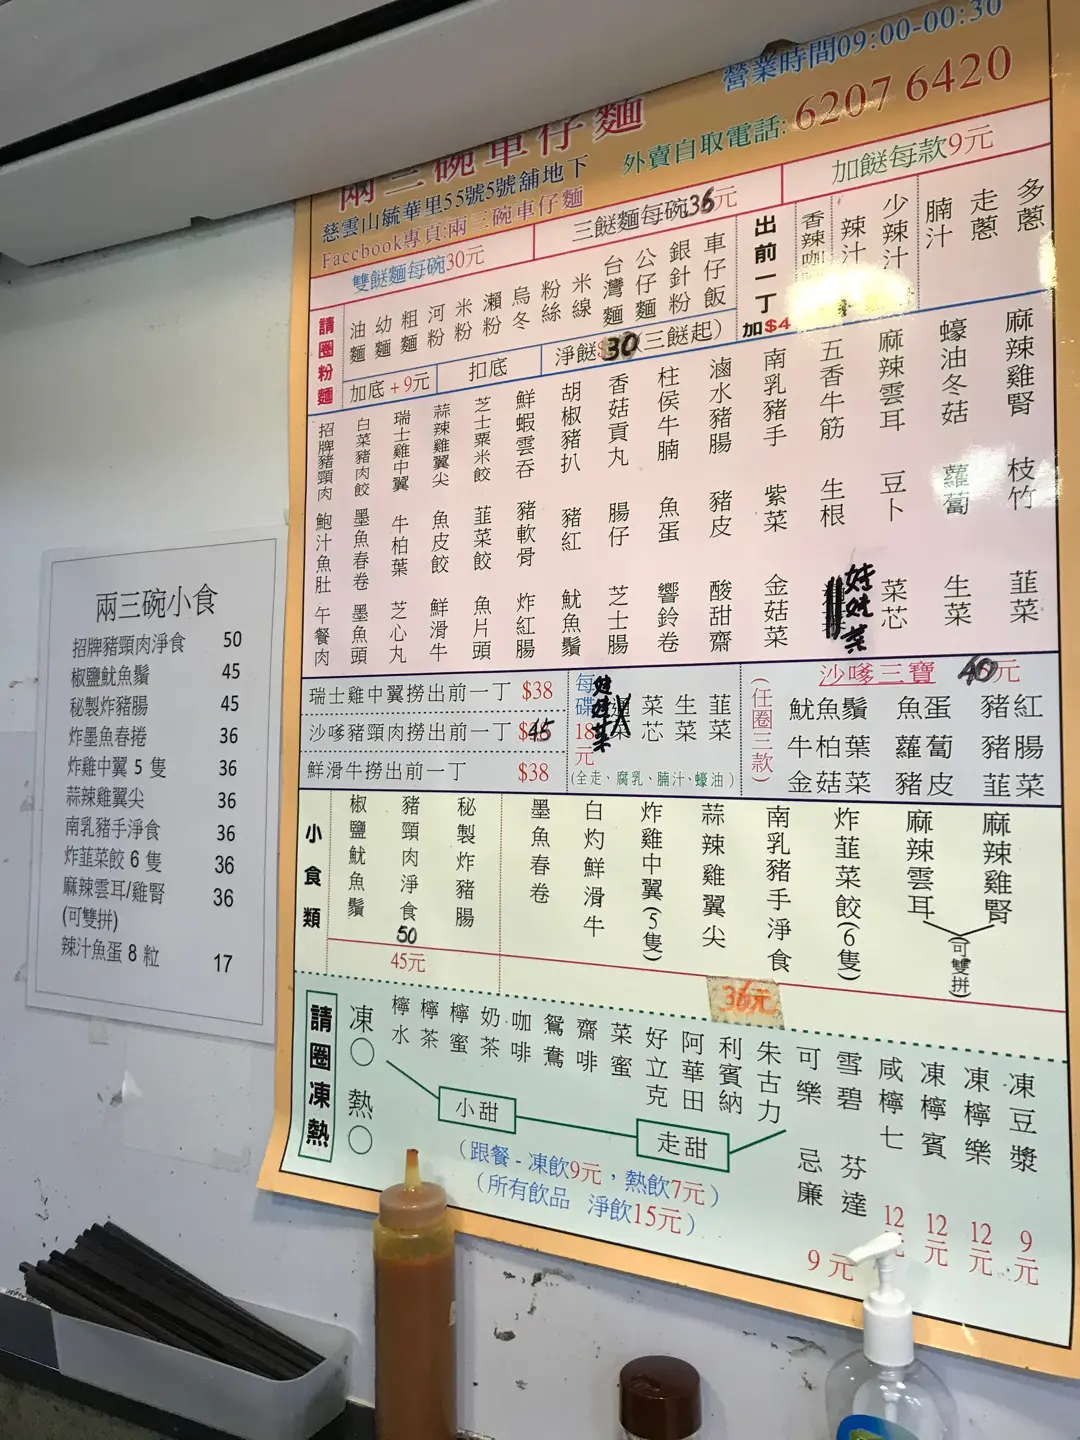 兩三碗小食
招牌豬頸肉淨食 50
椒鹽魷魚鬚 45
秘製炸豬腸 45
炸墨魚春捲 36
炸雞中翼 5 隻 36
蒜辣雞翼尖 36
南乳豬手淨食 36
炸韮菜餃 6 隻 36
麻辣雲耳/雞腎 36
(可雙拼)
辣汁魚蛋 8 粒 17
營業時間09:00-00:30
兩三碗車仔麵
外賣自取電話: 6207 6420
慈雲山毓華里55號5號舖地下
Faccbook專頁:兩三碗車仔麵
雙餸麵每碗30元
三餸麵每碗36元
加餸每款9元
請圈粉麵
油麵
幼麵
粗麵
河粉
米粉
瀨粉
烏冬
粉絲
米線
台灣麵
公仔麵
銀針粉
車仔飯
出前一丁加$4
香辣咖
辣汁
少辣汁
腩汁
走蔥
多蔥
加底 +9元
扣底
淨餸 30 (三餸起)
招牌豬頸肉
白菜豬肉餃
瑞士雞中翼
蒜辣雞翼尖
芝士粟米餃
鮮蝦雲吞
胡椒豬扒
香菇貢丸
柱侯牛腩
滷水豬腸
南乳豬手
五香牛筋
麻辣雲耳
蠔油冬菇
麻辣雞腎
鮑汁魚肚
墨魚春卷
牛柏葉
魚皮餃
韮菜餃
豬軟骨
豬紅
腸仔
魚蛋
豬皮
紫菜
生根
豆卜
蘿蔔
枝竹
午餐肉
墨魚頭
芝心丸
鮮滑牛
魚片頭
炸紅腸
魷魚鬚
芝士腸
響鈴卷
酸甜齋
金菇菜
娃娃菜
菜芯
生菜
韮菜
瑞士雞中翼撈出前一丁 $38
沙嗲豬頸肉撈出前一丁 $45
鮮滑牛撈出前一丁 $38
每碟18元
娃娃菜
菜芯
生菜
韮菜
(全走、腐乳、腩汁、蠔油)
(任圈三款)
沙嗲三寶 40元
魷魚鬚 魚蛋 豬紅
牛柏葉 蘿蔔 豬腸
金菇菜 豬皮 韮菜
小食類
椒鹽魷魚鬚
豬頸肉淨食
50
秘製炸豬腸
45元
墨魚春卷
白灼鮮滑牛
炸雞中翼(5隻)
蒜辣雞翼尖
南乳豬手淨食
炸韮菜餃(6隻)
麻辣雲耳
麻辣雞腎
(可雙拼)
36元
請圈凍熱
凍○ 熱○
檸水
檸茶
檸蜜
奶茶
咖啡
鴛鴦
齋啡
菜蜜
好立克
阿華田
利賓納
朱古力
可樂
雪碧
忌廉
芬達
9元
咸檸七
12元
凍檸賓
12元
凍檸樂
12元
凍豆漿
9元
小甜
走甜
(跟餐 - 凍飲9元，熱飲7元)
(所有飲品 淨飲15元)